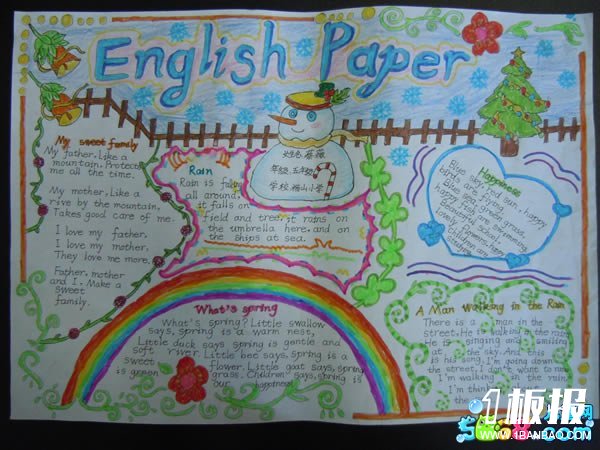 English Paper
My sweet family
My father, like a
mountain. Protects
me all the time.
My mother, like a
rive by the mountain.
Takes good care of me.
I love my father.
I love my mother.
They love me more.
Father, mother
and I. Make a
sweet
family.
Rain
Rain is falling
all around.
it falls on
field and tree, it rains on
the umbrella here, and on
the ships at sea.
姓名:蔷薇
年级:五年级
学校:福山小学
Happiness
Blue sky, for sun, happy
birds are flying
Blue sea, green grass,
happy fish are swimming
Beautiful school,
lovely flowers, happy
children are
What's spring
What's spring? Little swallow
says, spring is a warm nest,
Little duck says spring is gentle and
soft river. Little bee says, spring is a
sweet flower. Little goat says, spring
is green grass. Children says, spring is
our happiness!
A Man Walking in the Rain
There is a man in the
street. He is walking in the rain
He is singing and smiling
at the sky. And this
is his song, I'm going down
the street, I don't want to
I'm walking in the rain
I'm
the
1板报
WWW.1BANBAO.COM